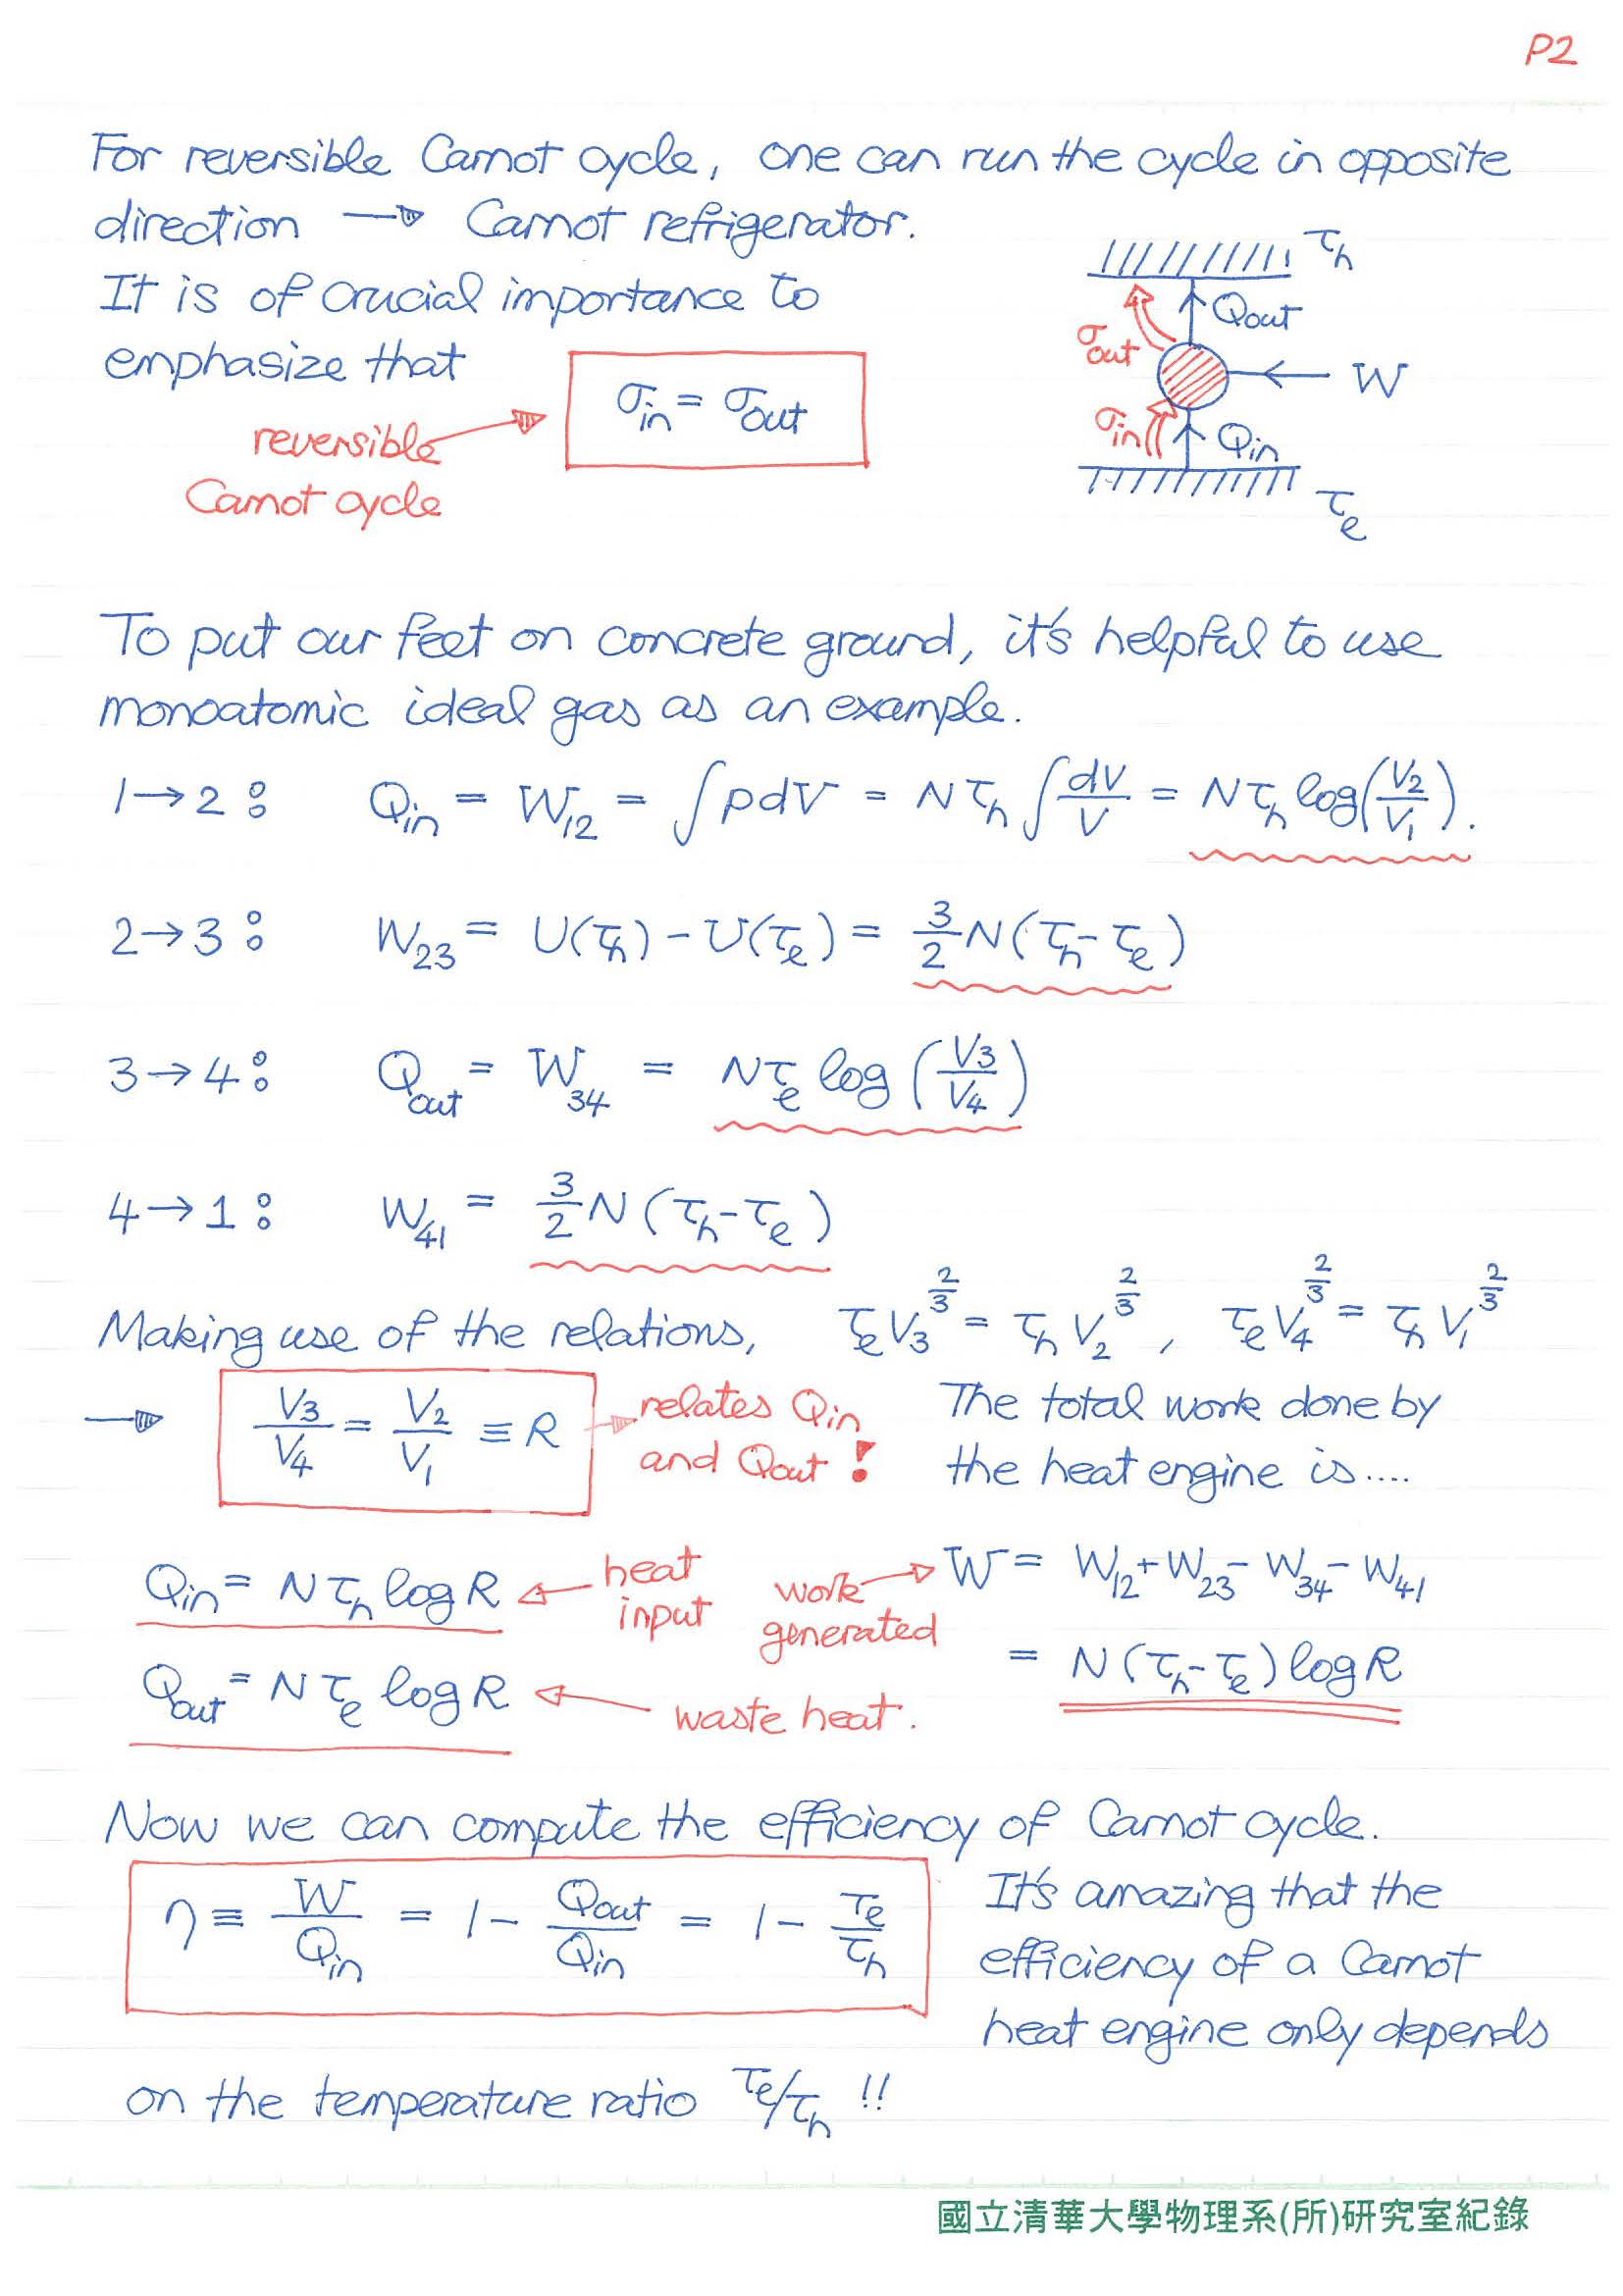 P2
For reversible Carnot cycle, one can run the cycle in opposite
direction → Carnot refrigerator.
It is of crucial importance to
emphasize that
σin = σout
reversible
Carnot cycle
τh
Qout
σout
W
σin
Qin
τℓ
To put our feet on concrete ground, it's helpful to use
monoatomic ideal gas as an example.
1→2 : Qin = W12 = ∫pdV = Nτh ∫dV/V = Nτh log(V2/V1).
2→3 : W23 = U(τh) - U(τℓ) = 3/2 N(τh-τℓ)
3→4 : Qout = W34 = Nτℓ log(V3/V4)
4→1 : W41 = 3/2 N(τh-τℓ)
Making use of the relations, τℓV3^2/3 = τhV2^2/3, τℓV4^2/3 = τhV1^2/3
→ V3/V4 = V2/V1 ≡ R
relates Qin
and Qout !
The total work done by
the heat engine is....
Qin = Nτh logR
heat
input
Qout = Nτℓ logR
waste heat.
work
generated
W = W12+W23-W34-W41
= N(τh-τℓ) logR
Now we can compute the efficiency of Carnot cycle.
η ≡ W/Qin = 1 - Qout/Qin = 1 - τℓ/τh
It's amazing that the
efficiency of a Carnot
heat engine only depends
on the temperature ratio τℓ/τh !!
國立清華大學物理系(所)研究室紀錄